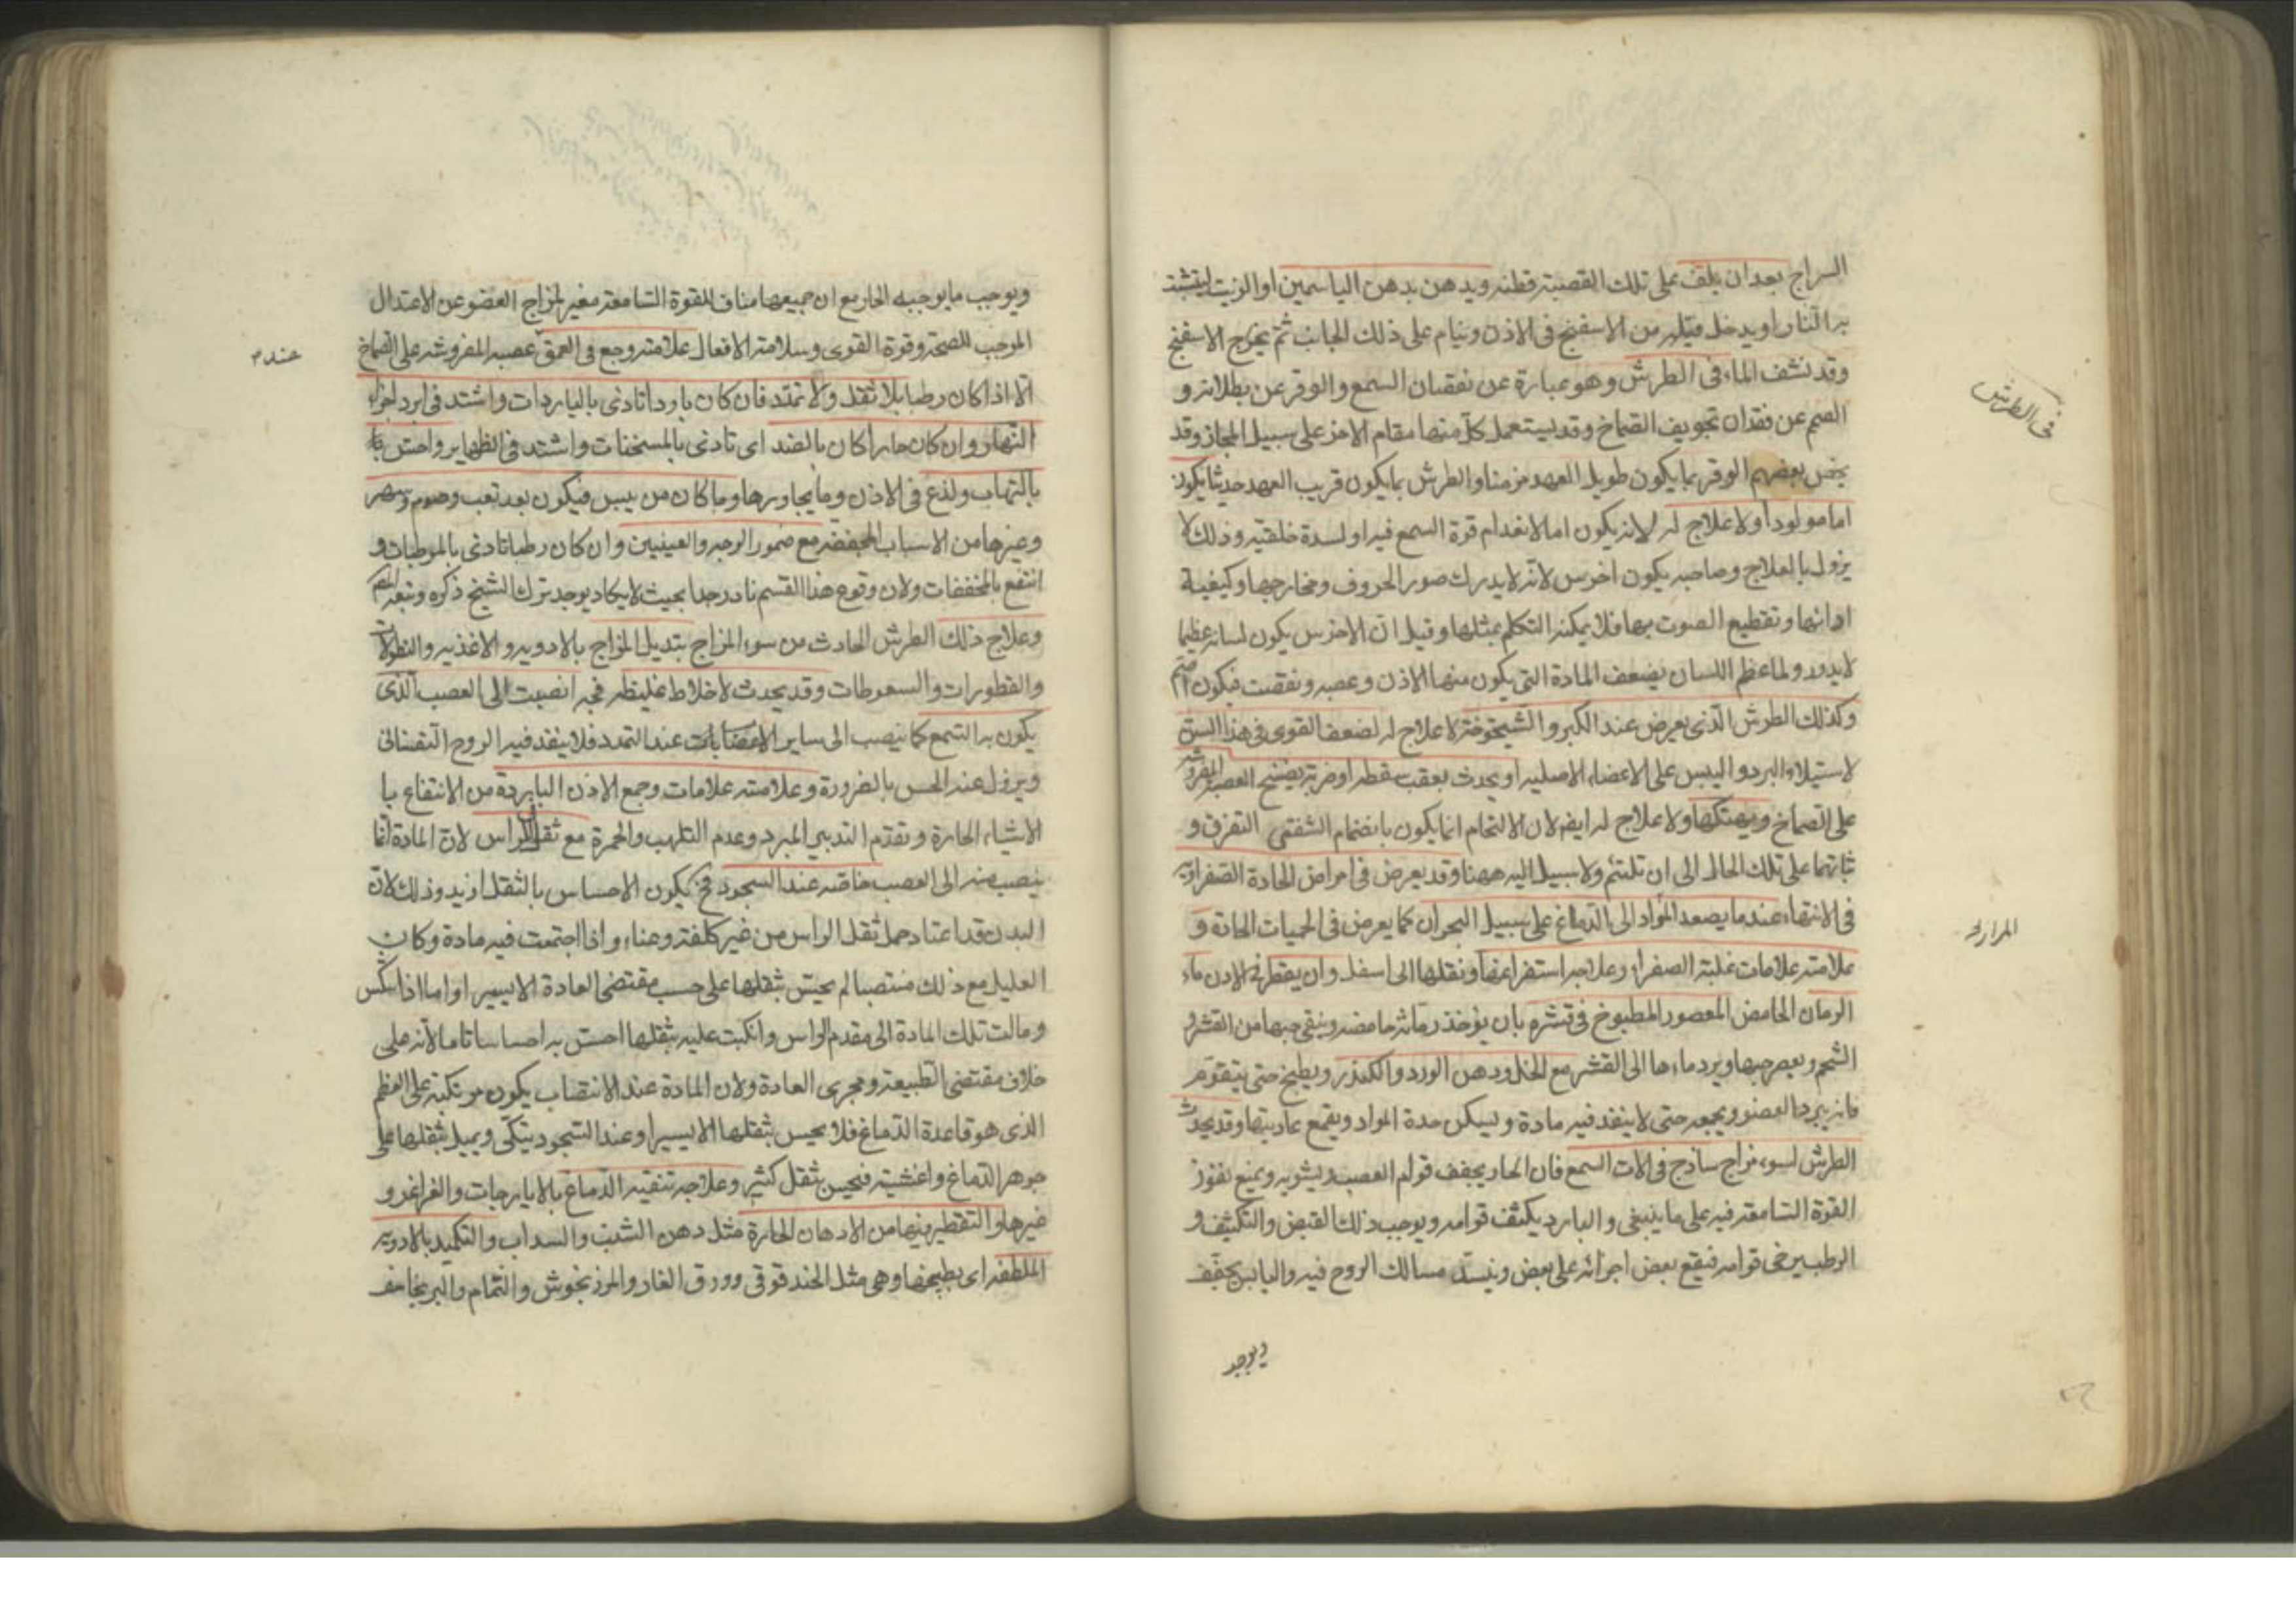 السراج بعد ان يلف على تلك القصبة قطنه ويدهن بدهن الياسمين او الزيت ليتشبث
به النار او يدخل فتيله من الاسفنج فى الاذن وينام على ذلك الجانب ثم يخرج الاسفنج
وقد نشف الماء فى الطرش وهو عبارة عن نقصان السمع والوقر عن بطلانه و
فى الطرش
الصمم عن فقدان تجويف الصماخ وقد يستعمل كل منها مقام الاخر على سبيل المجاز وقد
يخص بعضهم الوقر بما يكون طويل العهد مزمنا والطرش بما يكون قريب العهد حديثا يكون
اما مولودا ولا علاج له لانه يكون اما لانعدام قوة السمع فيه او لسدة خلقتيه وذلك لا
يزول بالعلاج وصاحبه يكون اخرس لانه لا يدرك صور الحروف ومخارجها وكيفية
ادائها وتقطيع الصوت بها فلا يمكنه التكلم بمثلها وقيل ان الاخرس يكون لسانه عظيما
لا يدور ولما عظم اللسان يضعف المادة التى يكون منها الاذن وعصبه ونقصت فيكون اصم
وكذلك الطرش الذى يعرض عند الكبر والشيخوخة لا علاج له لضعف القوى فى هذا السن
لاستيلاء البرد واليبس على الاعضاء الاصليه او يحدث بعقب سقطه او ضربة يفسخ العصبة المفروشه
على الصماخ ويهتكها ولا علاج له ايضا لان الالتحام انما يكون بانضمام الشفتى التفرق و
ثباتهما على تلك الحال الى ان تلتئم ولا سبيل اليه ههنا وقد يعرض فى امراض الحادة الصفراويه
فى الانتهاء عند ما يصعد المواد الى الدماغ على سبيل البحران كما يعرض فى الحميات الحادة و
علامته علامات غلبة الصفراء وعلاجه استفراغها ونقلها الى اسفل وان يقطر فى الاذن ماء
الرمان الحامض المعصور المطبوخ فى قشره بان يؤخذ رمانه حامضه وينقى حبها من القشر و
الشحم ويعصر حبها ويرد ماءها الى القشر مع الخل ودهن الورد والكندر ويطبخ حتى يتقوم
فانه يبرد العضو ويجمعه حتى لا ينفذ فيه مادة ويسكن حدة المواد ويقمع عاديتها وقد يحدث
الطرش لسوء مزاج ساذج فى الات السمع فان الحار يجفف قوام العصب ويشويه ويمنع نفوذ
القوة السامعة فيه على ما ينبغى والبارد يكثف قوامه ويوجب ذلك القبض والتكثيف و
الرطب يرخى قوامه فيقع بعض اجزائه على بعض وينسد مسالك الروح فيه واليابس يجفف
ويوجب
ويوجب ما يوجبه الحار مع ان جميعها مناف للقوة السامعة مغير لمزاج العضو عن الاعتدال
الموجب للصحة وقوة القوى وسلامة الافعال علامته وجع فى العمق عصبه المفروشه على الصماخ
عند م
الا اذا كان رطبا بلا ثقل ولا تمدد فان كان باردا تاذى بالباردات واشتد فى ابرد اجزاء
النهار وان كان حارا كان بالضد اى تاذى بالمسخنات واشتد فى الظهاير واحس
بالتهاب ولذع فى الاذن وما يجاورها وما كان من يبس فيكون بعد تعب وصوم وسهر
وغيرها من الاسباب المجففه مع ضمور الوجه والعينين وان كان رطبا تاذى بالمرطبات و
انتفع بالمجففات ولان وقوع هذا القسم نادر جدا بحيث لا يكاد يوجد ترك الشيخ ذكره وتبعه المص
وعلاج ذلك الطرش الحادث من سوء المزاج بتديل المزاج بالادويه والاغذيه والنطولات
والقطورات والسعوطات وقد يحدث لاخلاط غليظه فجه انصبت الى العصب الذى
يكون به السمع كما ينصب الى ساير الاعصاب عند التمدد فلا ينفذ فيه الروح النفسانى
ويزول عنه الحس بالضرورة وعلامته علامات وجع الاذن الباردة من الانتفاع با
الاشياء الحارة وتقدم التدبير المبرد وعدم التلهب والحمرة مع ثقل الراس لان المادة انما
ينصب منه الى العصب خاصه عند السجود فح يكون الاحساس بالثقل ازيد وذلك لان
البدن قد اعتاد حمل ثقل الراس من غير كلفة وعناء واذا اجتمعت فيه مادة وكان
العليل مع ذلك منتصبا لم يحس بثقلها على حسب مقتضى العادة الا يسيرا واما اذا نكس
ومالت تلك المادة الى مقدم الراس وانكبت عليه بثقلها احس به احساسا تاما لانه على
خلاف مقتضى الطبيعة ومجرى العادة ولان المادة عند الانتصاب يكون مرتكبة على العظم
الذى هو قاعدة الدماغ فلا يحس بثقلها الا يسيرا وعند السجود يتكى ويميل بثقلها على
جوهر الدماغ واغشيته فيحس بثقل كثير وعلاجه تنقيه الدماغ بالايارجات والغراغر و
غيرها والتقطير فيها من الادهان الحارة مثل دهن الشبث والسداب والتكميد بالادويه
الملطفه اى بطبيخها وهى مثل الحندقوقى وورق الغار والمرزنجوش والنمام والبرنجاسف